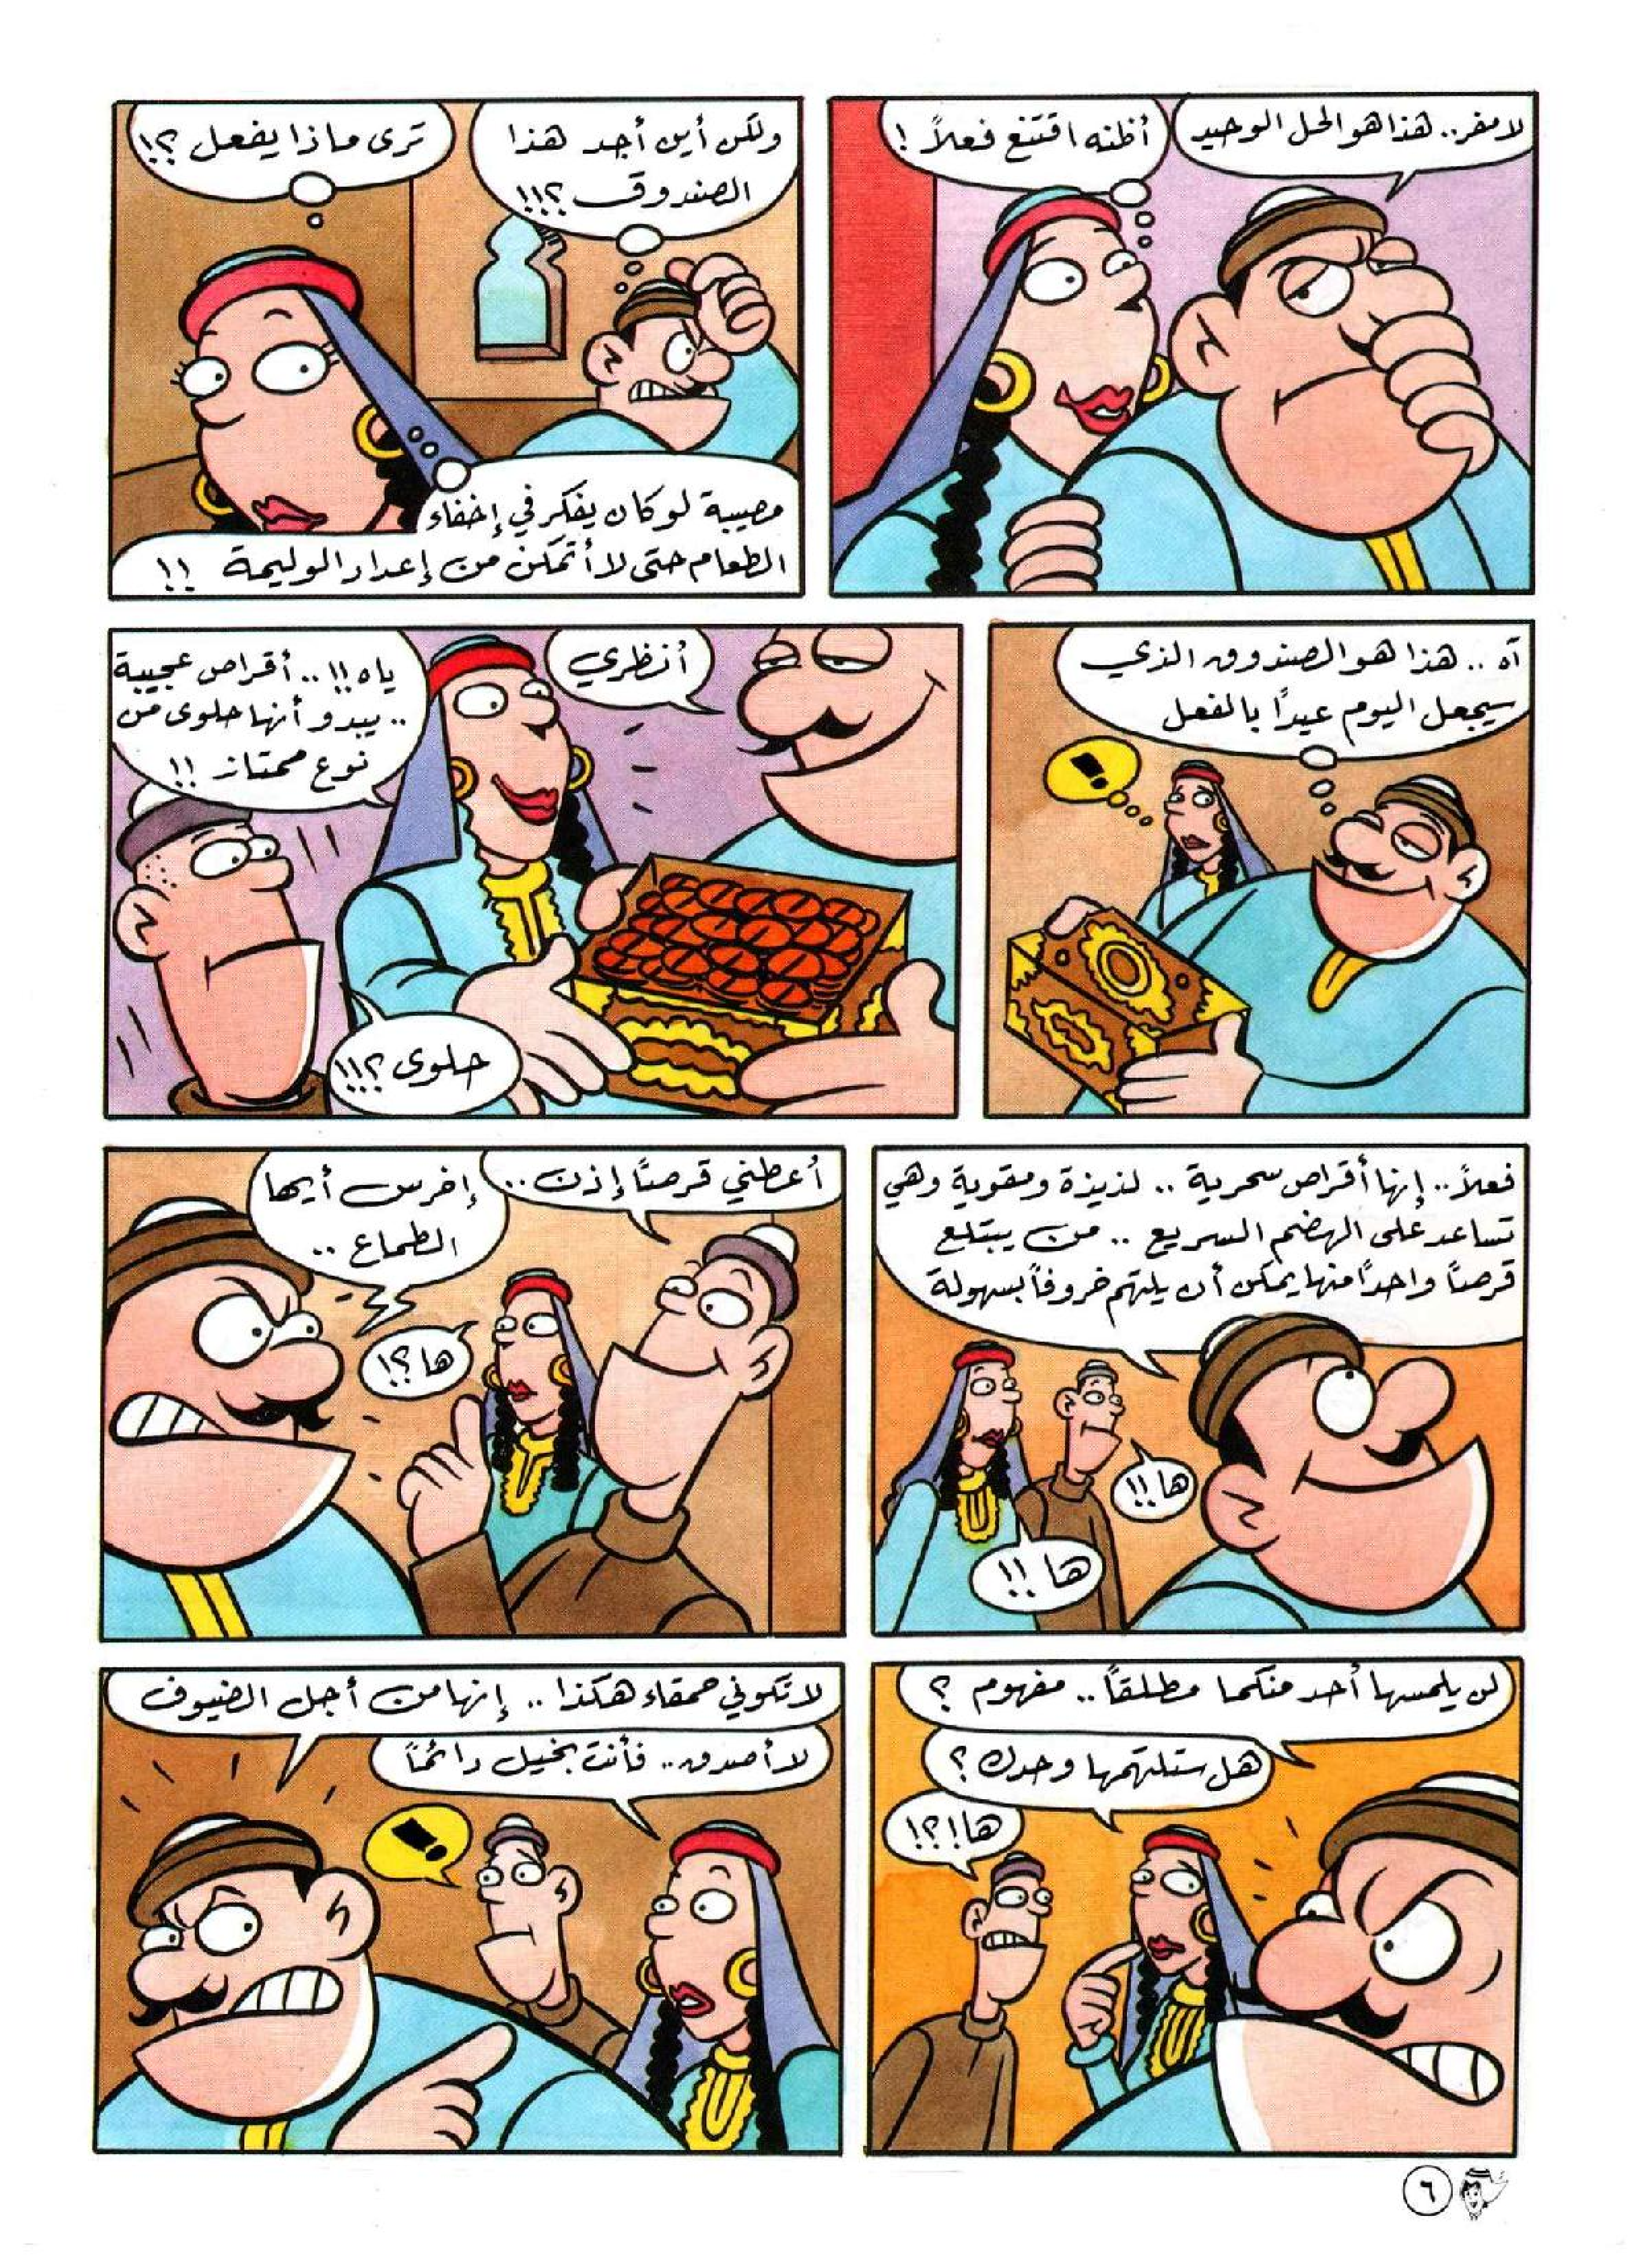 لا مفر.. هذا هو الحل الوحيد
أظنه اقتنع فعلاً !
ولكن أين أجد هذا
الصندوق ؟!!!
ترى ماذا يفعل ؟!
مصيبة لو كان يفكر في إخفاء
الطعام حتى لا أتمكن من إعداد الوليمة !!
آه .. هذا هو الصندوق الذي
سيجعل اليوم عيدًا بالفعل
!
أنظري
ياه !!.. أقراص عجيبة
.. يبدو أنها حلوى من
نوع ممتاز !!
حلوى ؟!!!
فعلاً.. إنها أقراص سحرية .. لذيذة ومقوية وهي
تساعد على الهضم السريع .. من يبتلع
قرصًا واحدًا منها يمكن أن يلتهم خروفًا بسهولة
ها !!
ها !!
أعطني قرصًا إذن ..
إخرس أيها
الطماع ..
ها ؟!
لن يلمسها أحد منكما مطلقًا .. مفهوم ؟
هل ستلتهمها وحدك ؟
ها !؟!
لا تكوني حمقاء هكذا .. إنها من أجل الضيوف
لا أصدق.. فأنت بخيل دائمًا
!
٦